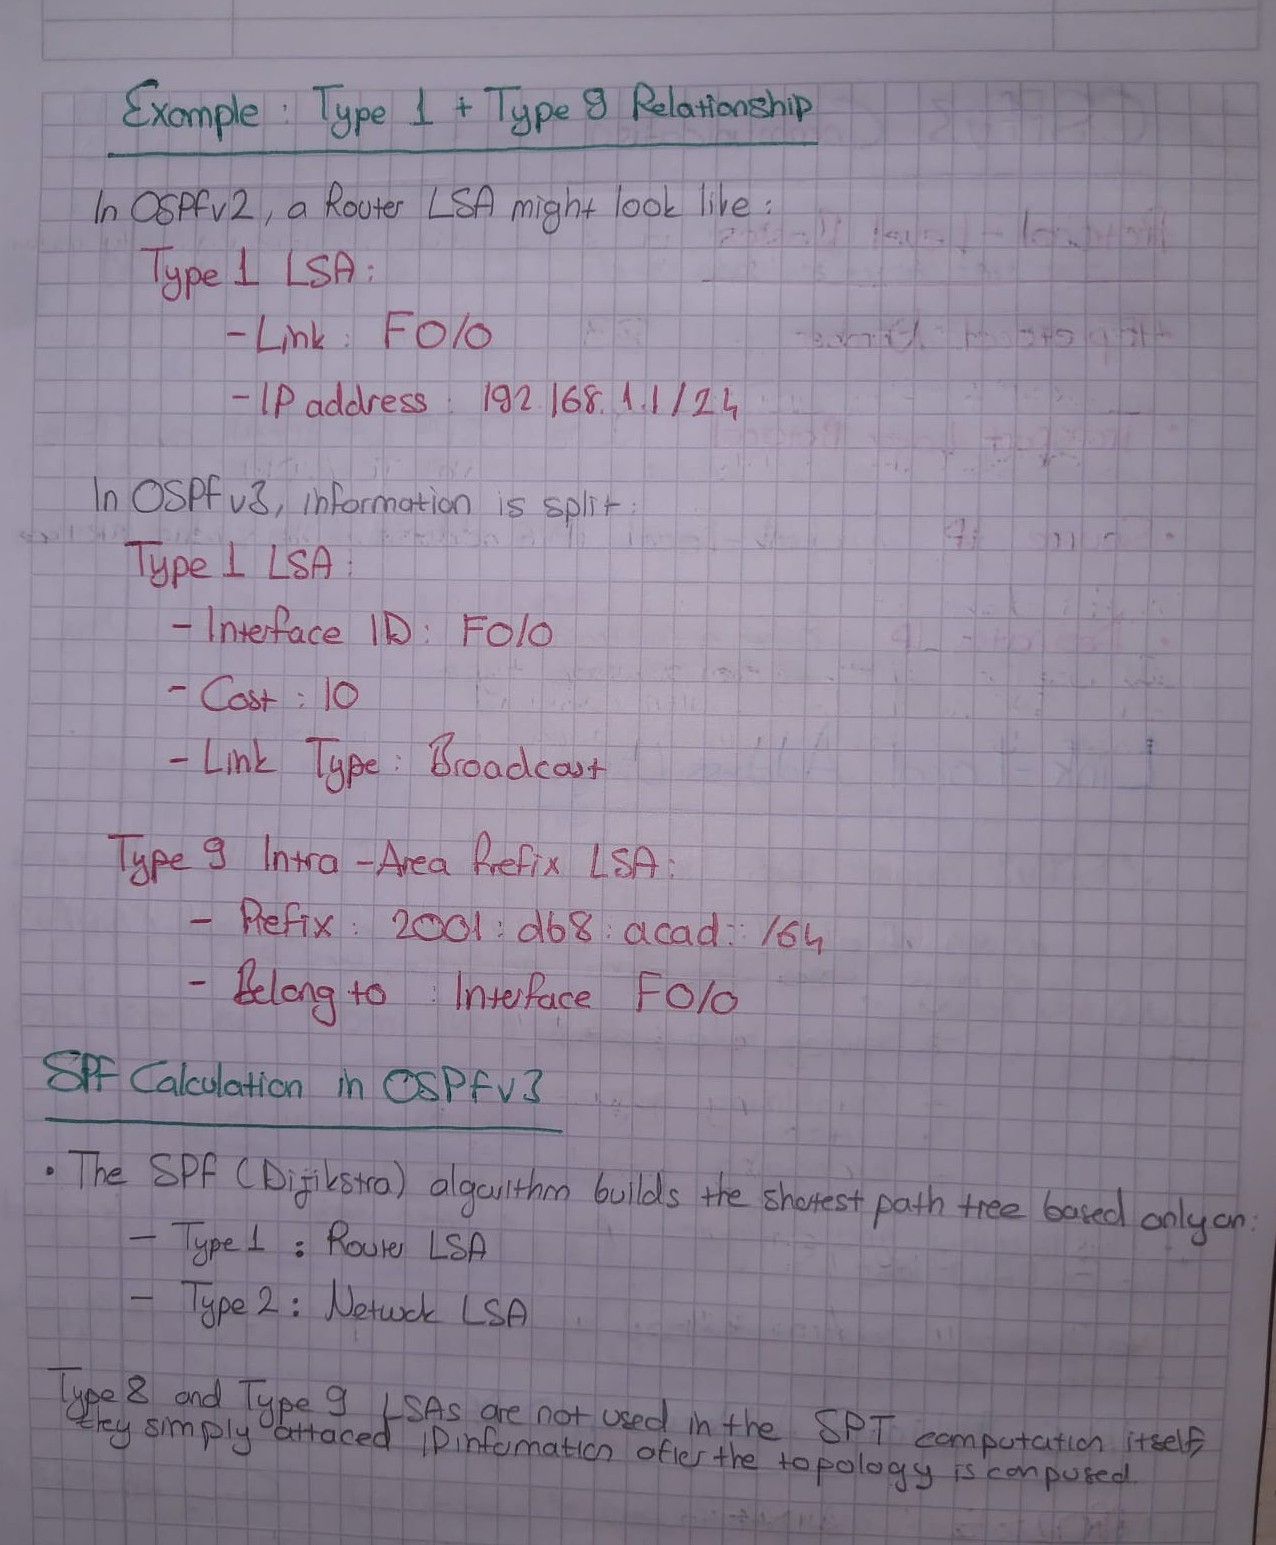 Example : Type 1 + Type 9 Relationship
In OSPFv2, a Router LSA might look like :
Type 1 LSA :
- Link : F0/0
- IP address : 192.168.1.1/24
In OSPFv3, information is split :
Type 1 LSA :
- Interface ID : F0/0
- Cost : 10
- Link Type : Broadcast
Type 9 Intra-Area Prefix LSA :
- Prefix : 2001:db8:acad::/64
- Belong to : Interface F0/0
SPF Calculation in OSPFv3
• The SPF (Dijikstra) algorithm builds the shortest path tree based only on :
- Type 1 : Router LSA
- Type 2 : Network LSA
Type 8 and Type 9 LSAs are not used in the SPT computation itself,
they simply attaced IP information after the topology is conpused